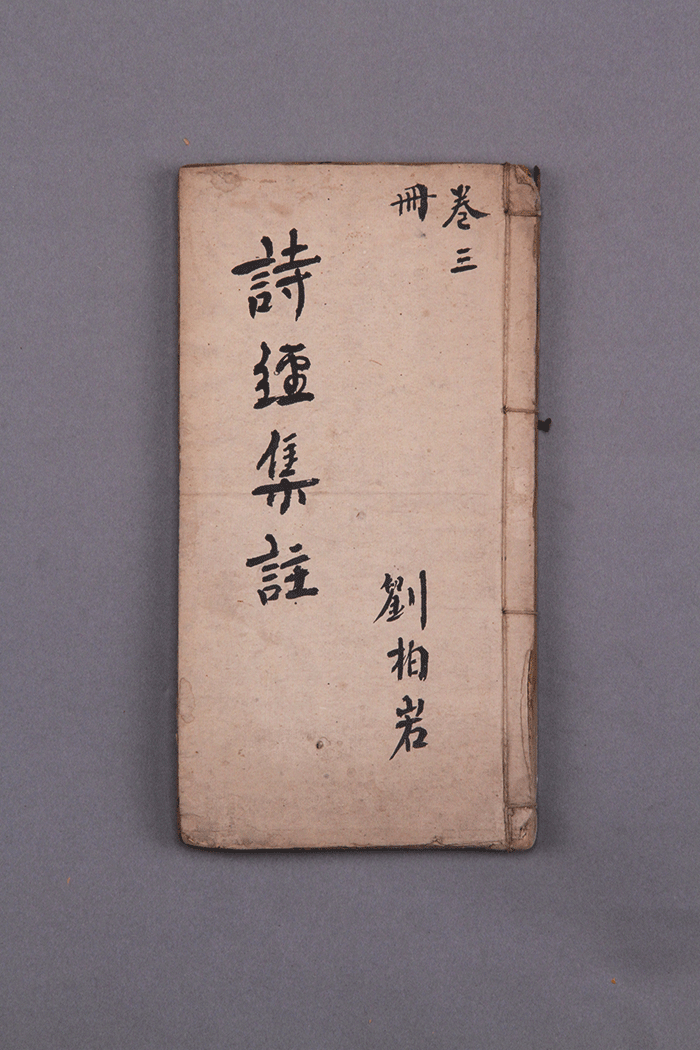 卷三
冊
劉柏岩
詩經集註